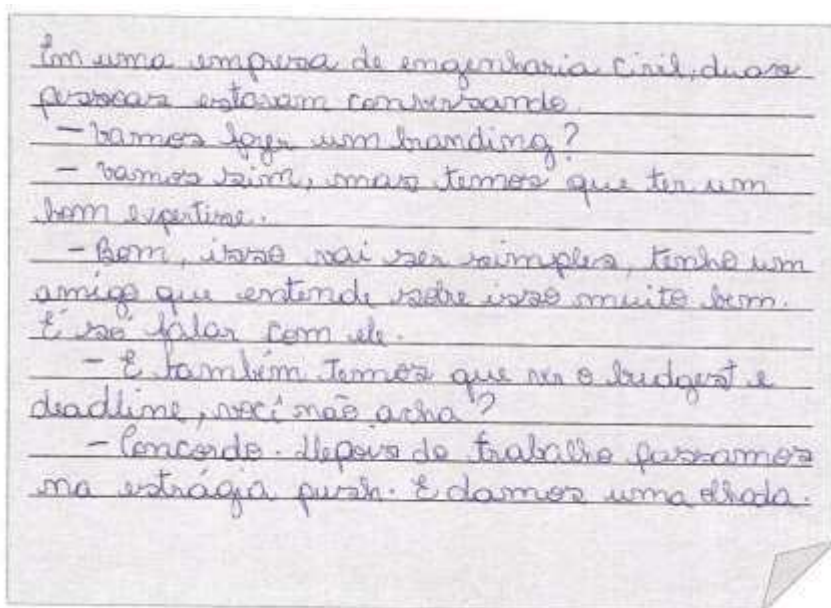 Em uma empresa de engenharia civil, duas
pessoas estavam conversando.
– Vamos fazer um branding?
– Vamos sim, mas temos que ter um
bom expertise.
– Bom, isso vai ser simples, tenho um
amigo que entende sobre isso muito bem.
É só falar com ele.
– E também temos que ver o budgest e
deadline, você não acha?
– Concordo. Depois do trabalho passamos
na estrágia push. E damos uma olhada.